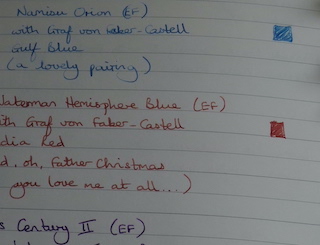 Namisu Orion (EF)
with Graf von Faber-Castell
Gulf Blue
(a lovely pairing)
Waterman Hemisphere Blue (EF)
ith Graf von Faber-Castell
dia Red
d, oh, Father Christmas
you love me at all...)
s Century II (EF)